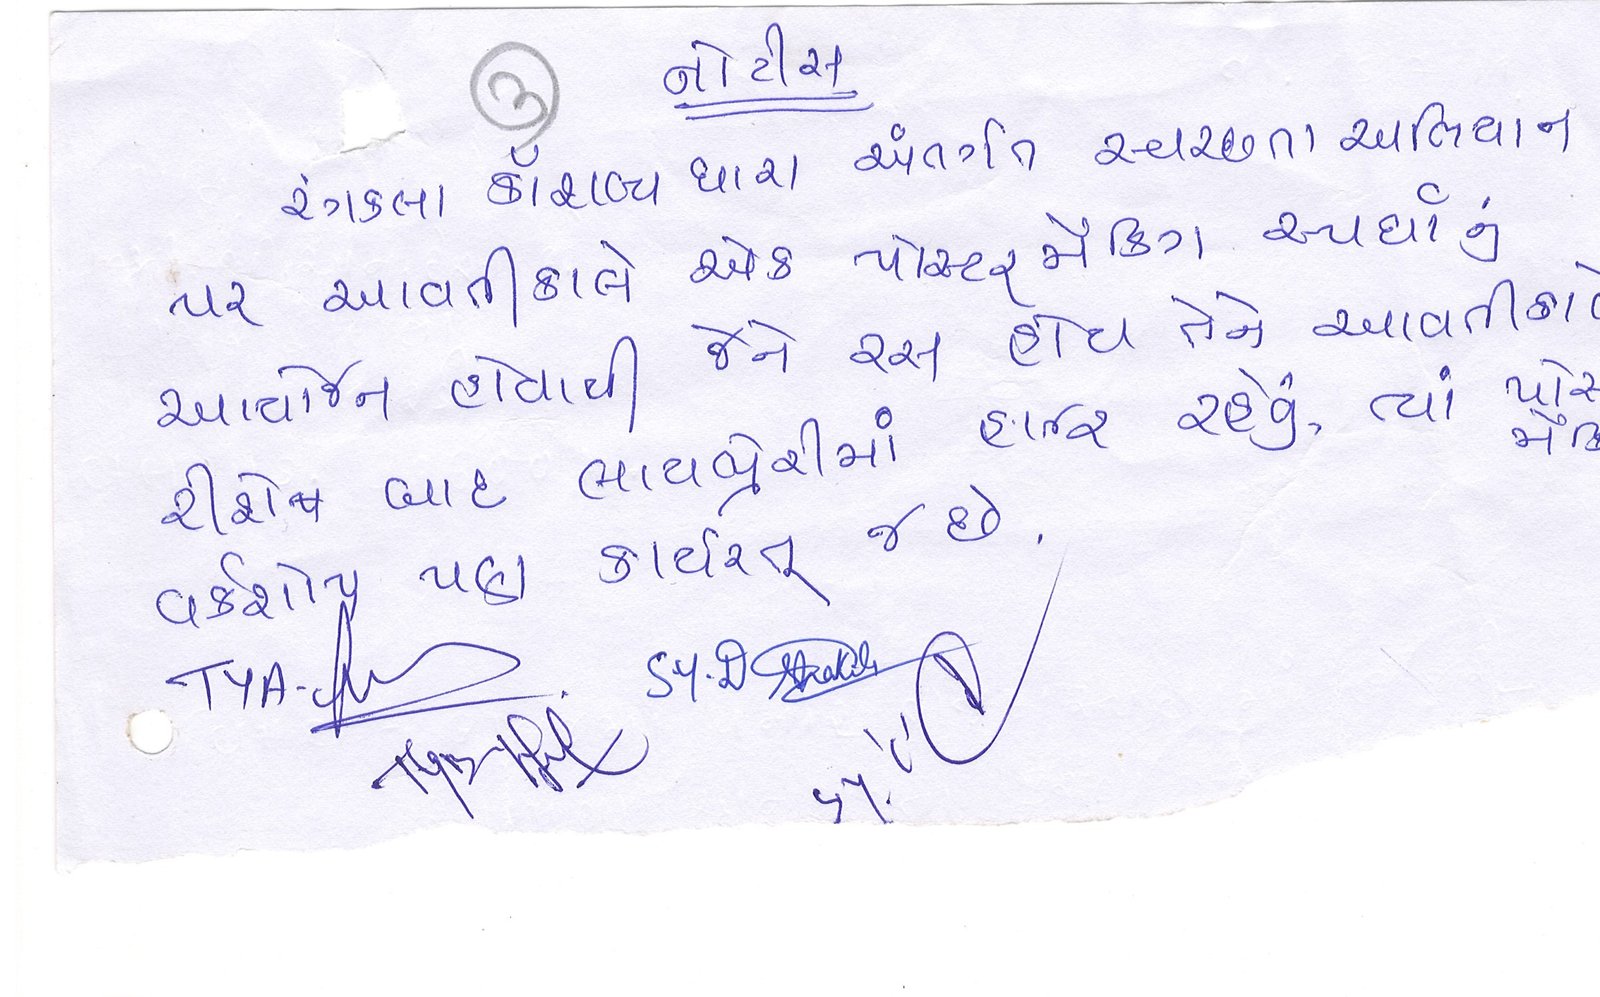 ૩
નોટીસ
રંગકલા કૌશલ્ય ધારા અંતર્ગત સ્વચ્છતા અભિયાન
પર આવતીકાલે એક પોસ્ટર મેંકિંગ સ્પર્ધાનું
આયોજન હોવાથી જેને રસ હોય તેને આવતીકાલે
રીશેષ બાદ લાયબ્રેરીમાં હાજર રહેવું, ત્યાં પોસ
મેંકિ
વર્કશોપ પણ કાર્યરત્ જ છે.
TYA- SY.D
TYB-
SY.